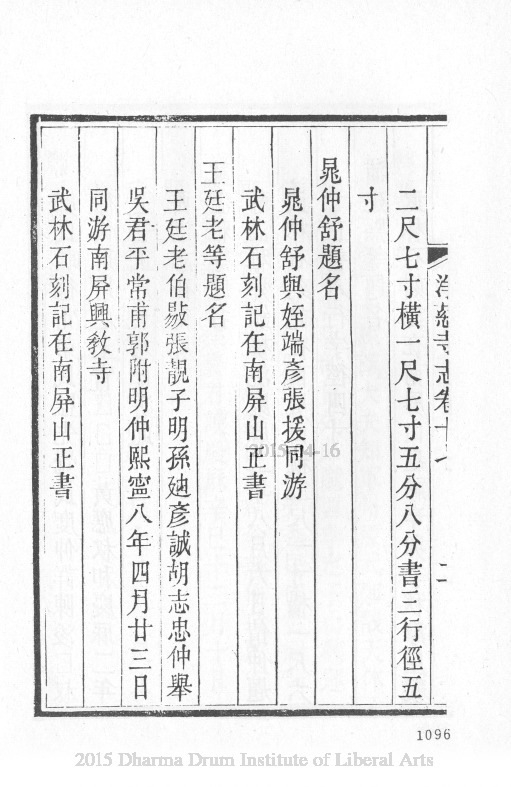 淨慈寺志卷十七
二
二尺七寸橫一尺七寸五分八分書三行徑五
寸
晁仲舒題名
晁仲舒與姪端彥張援同游
武林石刻記在南屏山正書
王廷老等題名
王廷老伯敭張靚子明孫迪彥誠胡志忠仲舉
吳君平常甫郭附明仲熙寧八年四月廿三日
同游南屏興敎寺
武林石刻記在南屏山正書
2015-04-16
1096
2015 Dharma Drum Institute of Liberal Arts